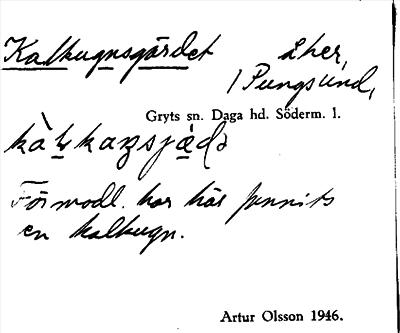 Kalkugnsgärdet åker,
i Pungsund,
Gryts sn. Daga hd. Söderm. l.
Förmodl. har här funnits
en kalkugn.
Artur Olsson 1946.